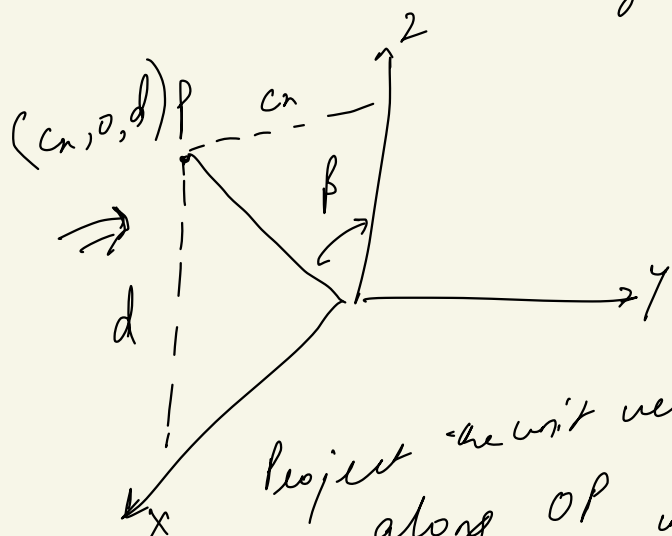 Z
(cx, 0, d) P
cx
β
d
Y
Project the unit ve
along OP
X